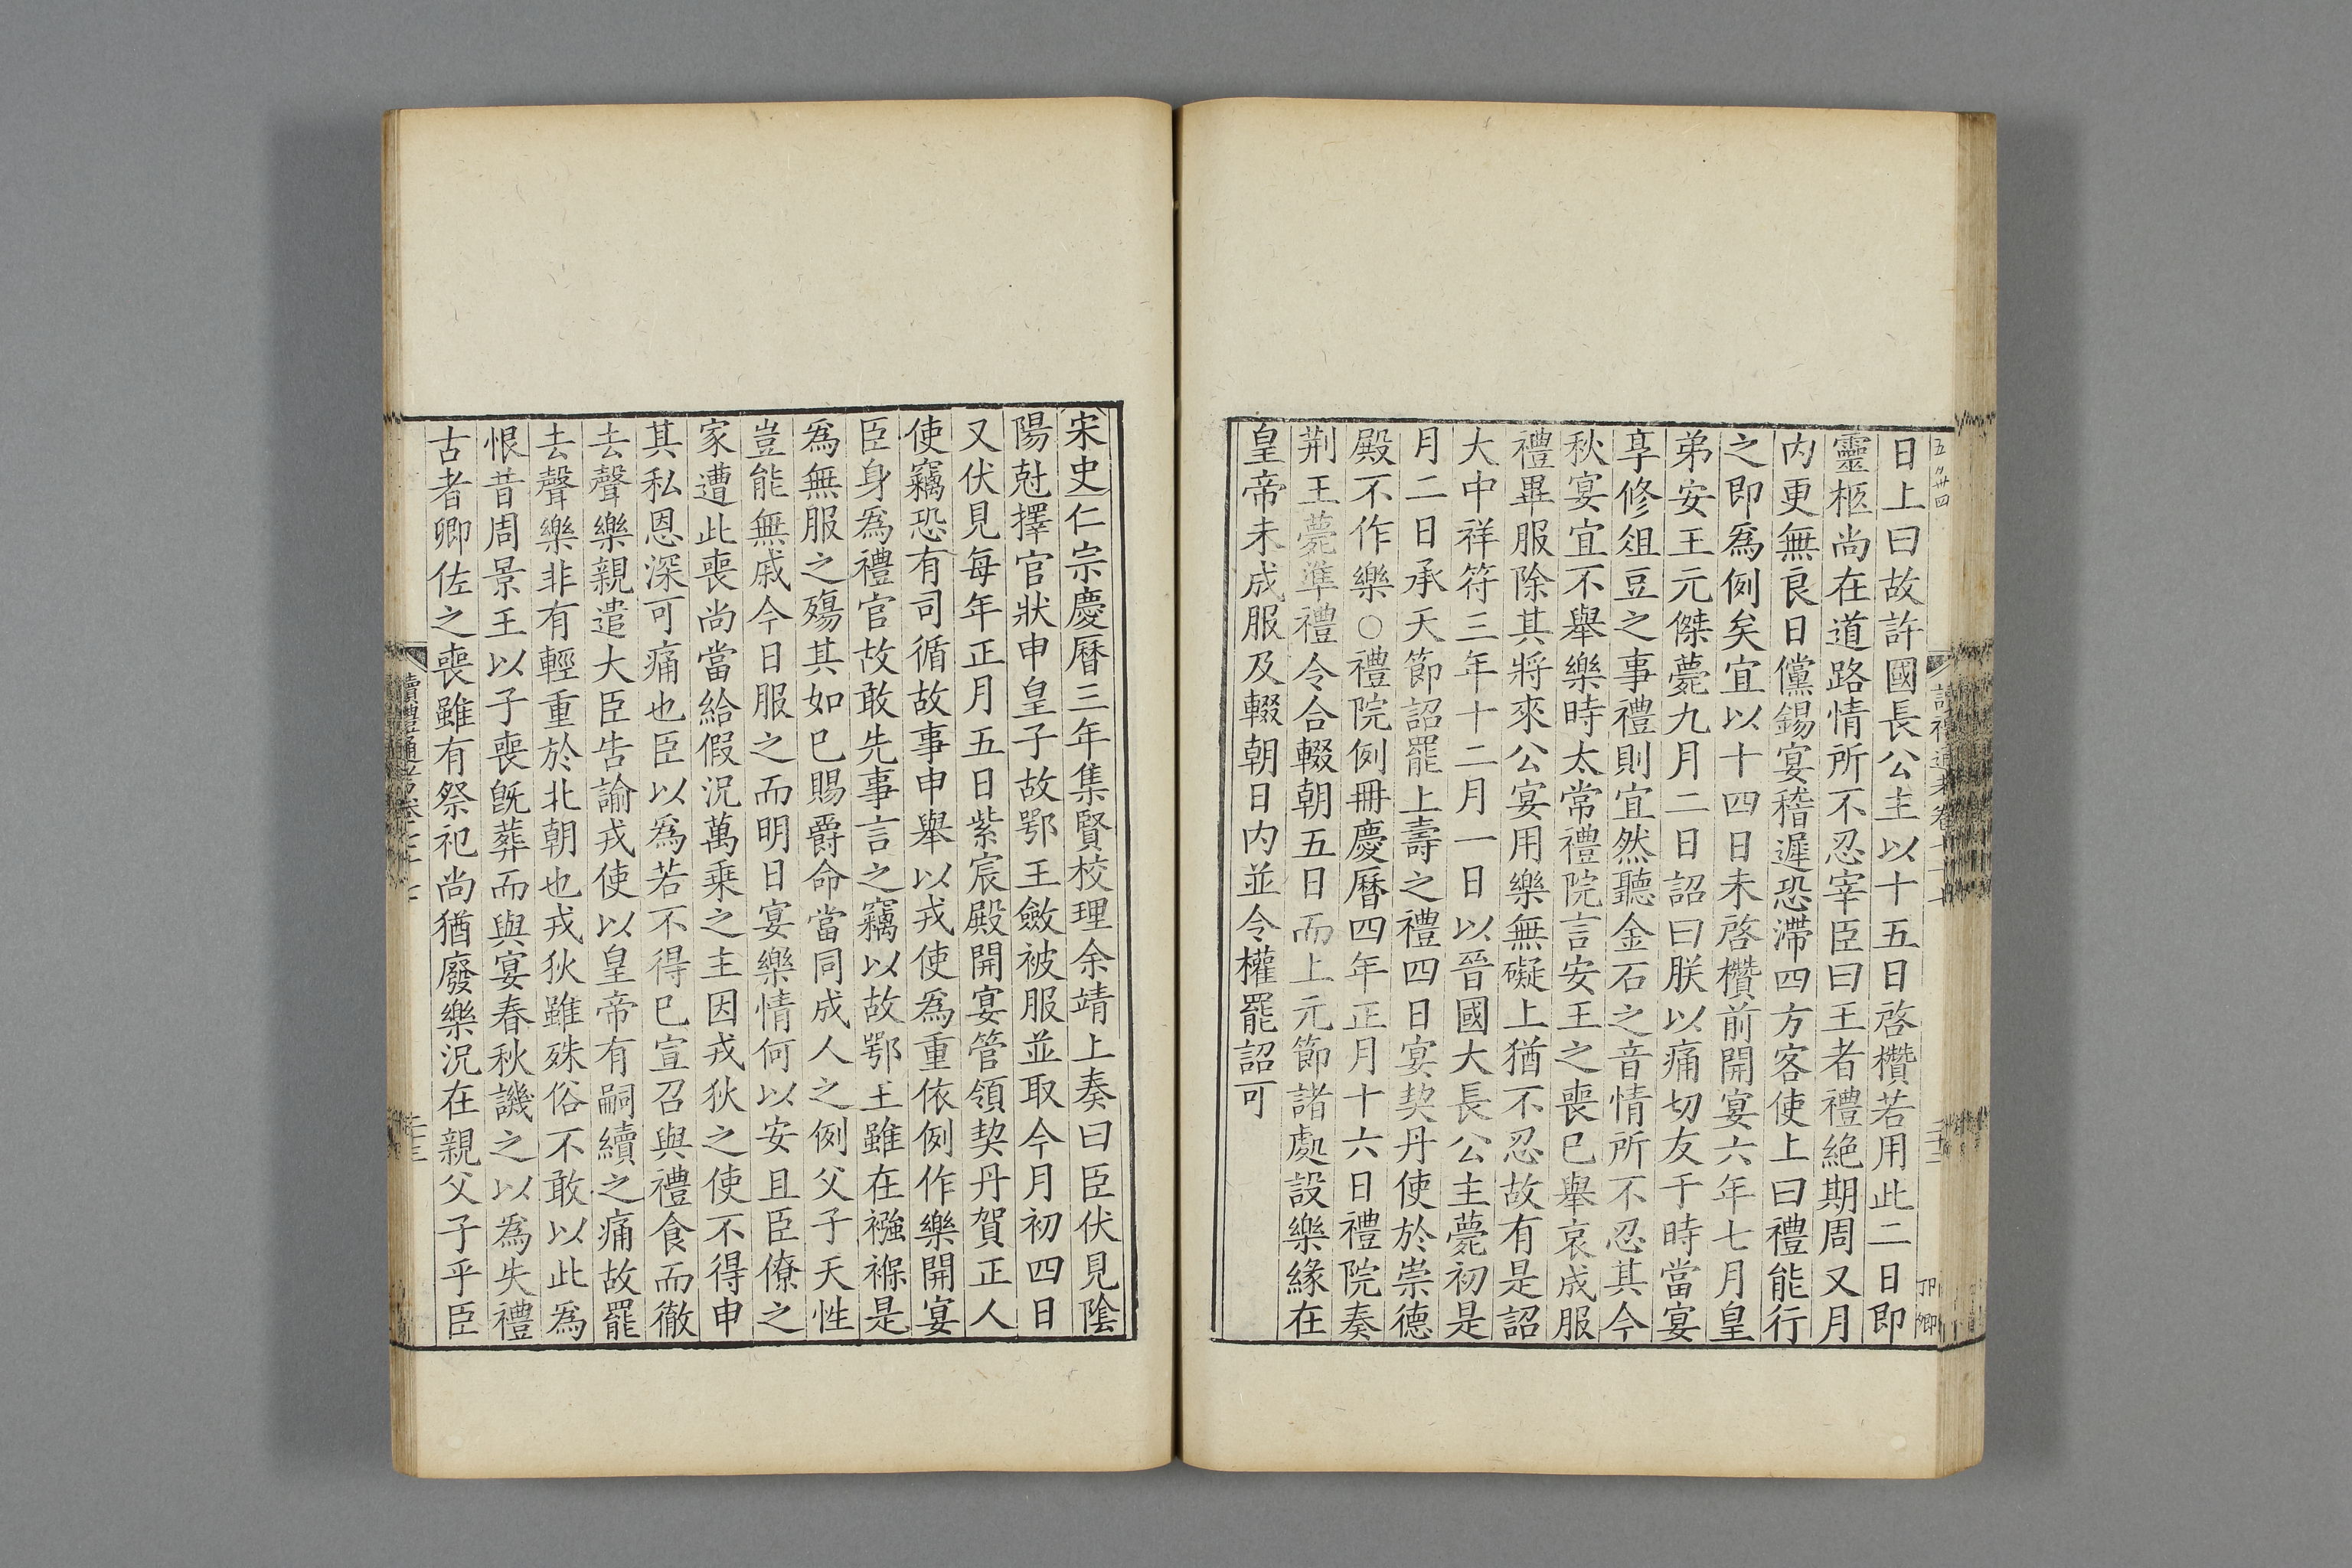 日上曰故許國長公主以十五日啓欑若用此二日即
靈柩尚在道路情所不忍宰臣曰王者禮絶期周又月
内更無良日儻錫宴稽遲恐滯四方客使上曰禮能行
之即爲例矣宜以十四日未啓欑前開宴六年七月皇
弟安王元傑薨九月二日詔曰朕以痛切友于時當宴
享修俎豆之事禮則宜然聽金石之音情所不忍其今
秋宴宜不舉樂時太常禮院言安王之喪已舉哀成服
禮畢服除其將來公宴用樂無礙上猶不忍故有是詔
大中祥符三年十二月一日以晉國大長公主薨初是
月二日承天節詔罷上壽之禮四日宴契丹使於崇德
殿不作樂○禮院例冊慶曆四年正月十六日禮院奏
荆王薨準禮令合輟朝五日而上元節諸處設樂緣在
皇帝未成服及輟朝日内並令權罷詔可
宋史仁宗慶曆三年集賢校理余靖上奏曰臣伏見陰
陽尅擇官狀申皇子故鄂王斂被服並取今月初四日
又伏見每年正月五日紫宸殿開宴管領契丹賀正人
使竊恐有司循故事申舉以戎使爲重依例作樂開宴
臣身爲禮官故敢先事言之竊以故鄂王雖在襁褓是
爲無服之殤其如已賜爵命當同成人之例父子天性
豈能無戚今日服之而明日宴樂情何以安且臣僚之
家遭此喪尚當給假況萬乗之主因戎狄之使不得申
其私恩深可痛也臣以爲若不得已宣召與禮食而徹
去聲樂親遣大臣告諭戎使以皇帝有嗣續之痛故罷
去聲樂非有輕重於北朝也戎狄雖殊俗不敢以此爲
恨昔周景王以子喪旣葬而與宴春秋譏之以爲失禮
古者卿佐之喪雖有祭祀尚猶廢樂況在親父子乎臣
讀禮通考卷